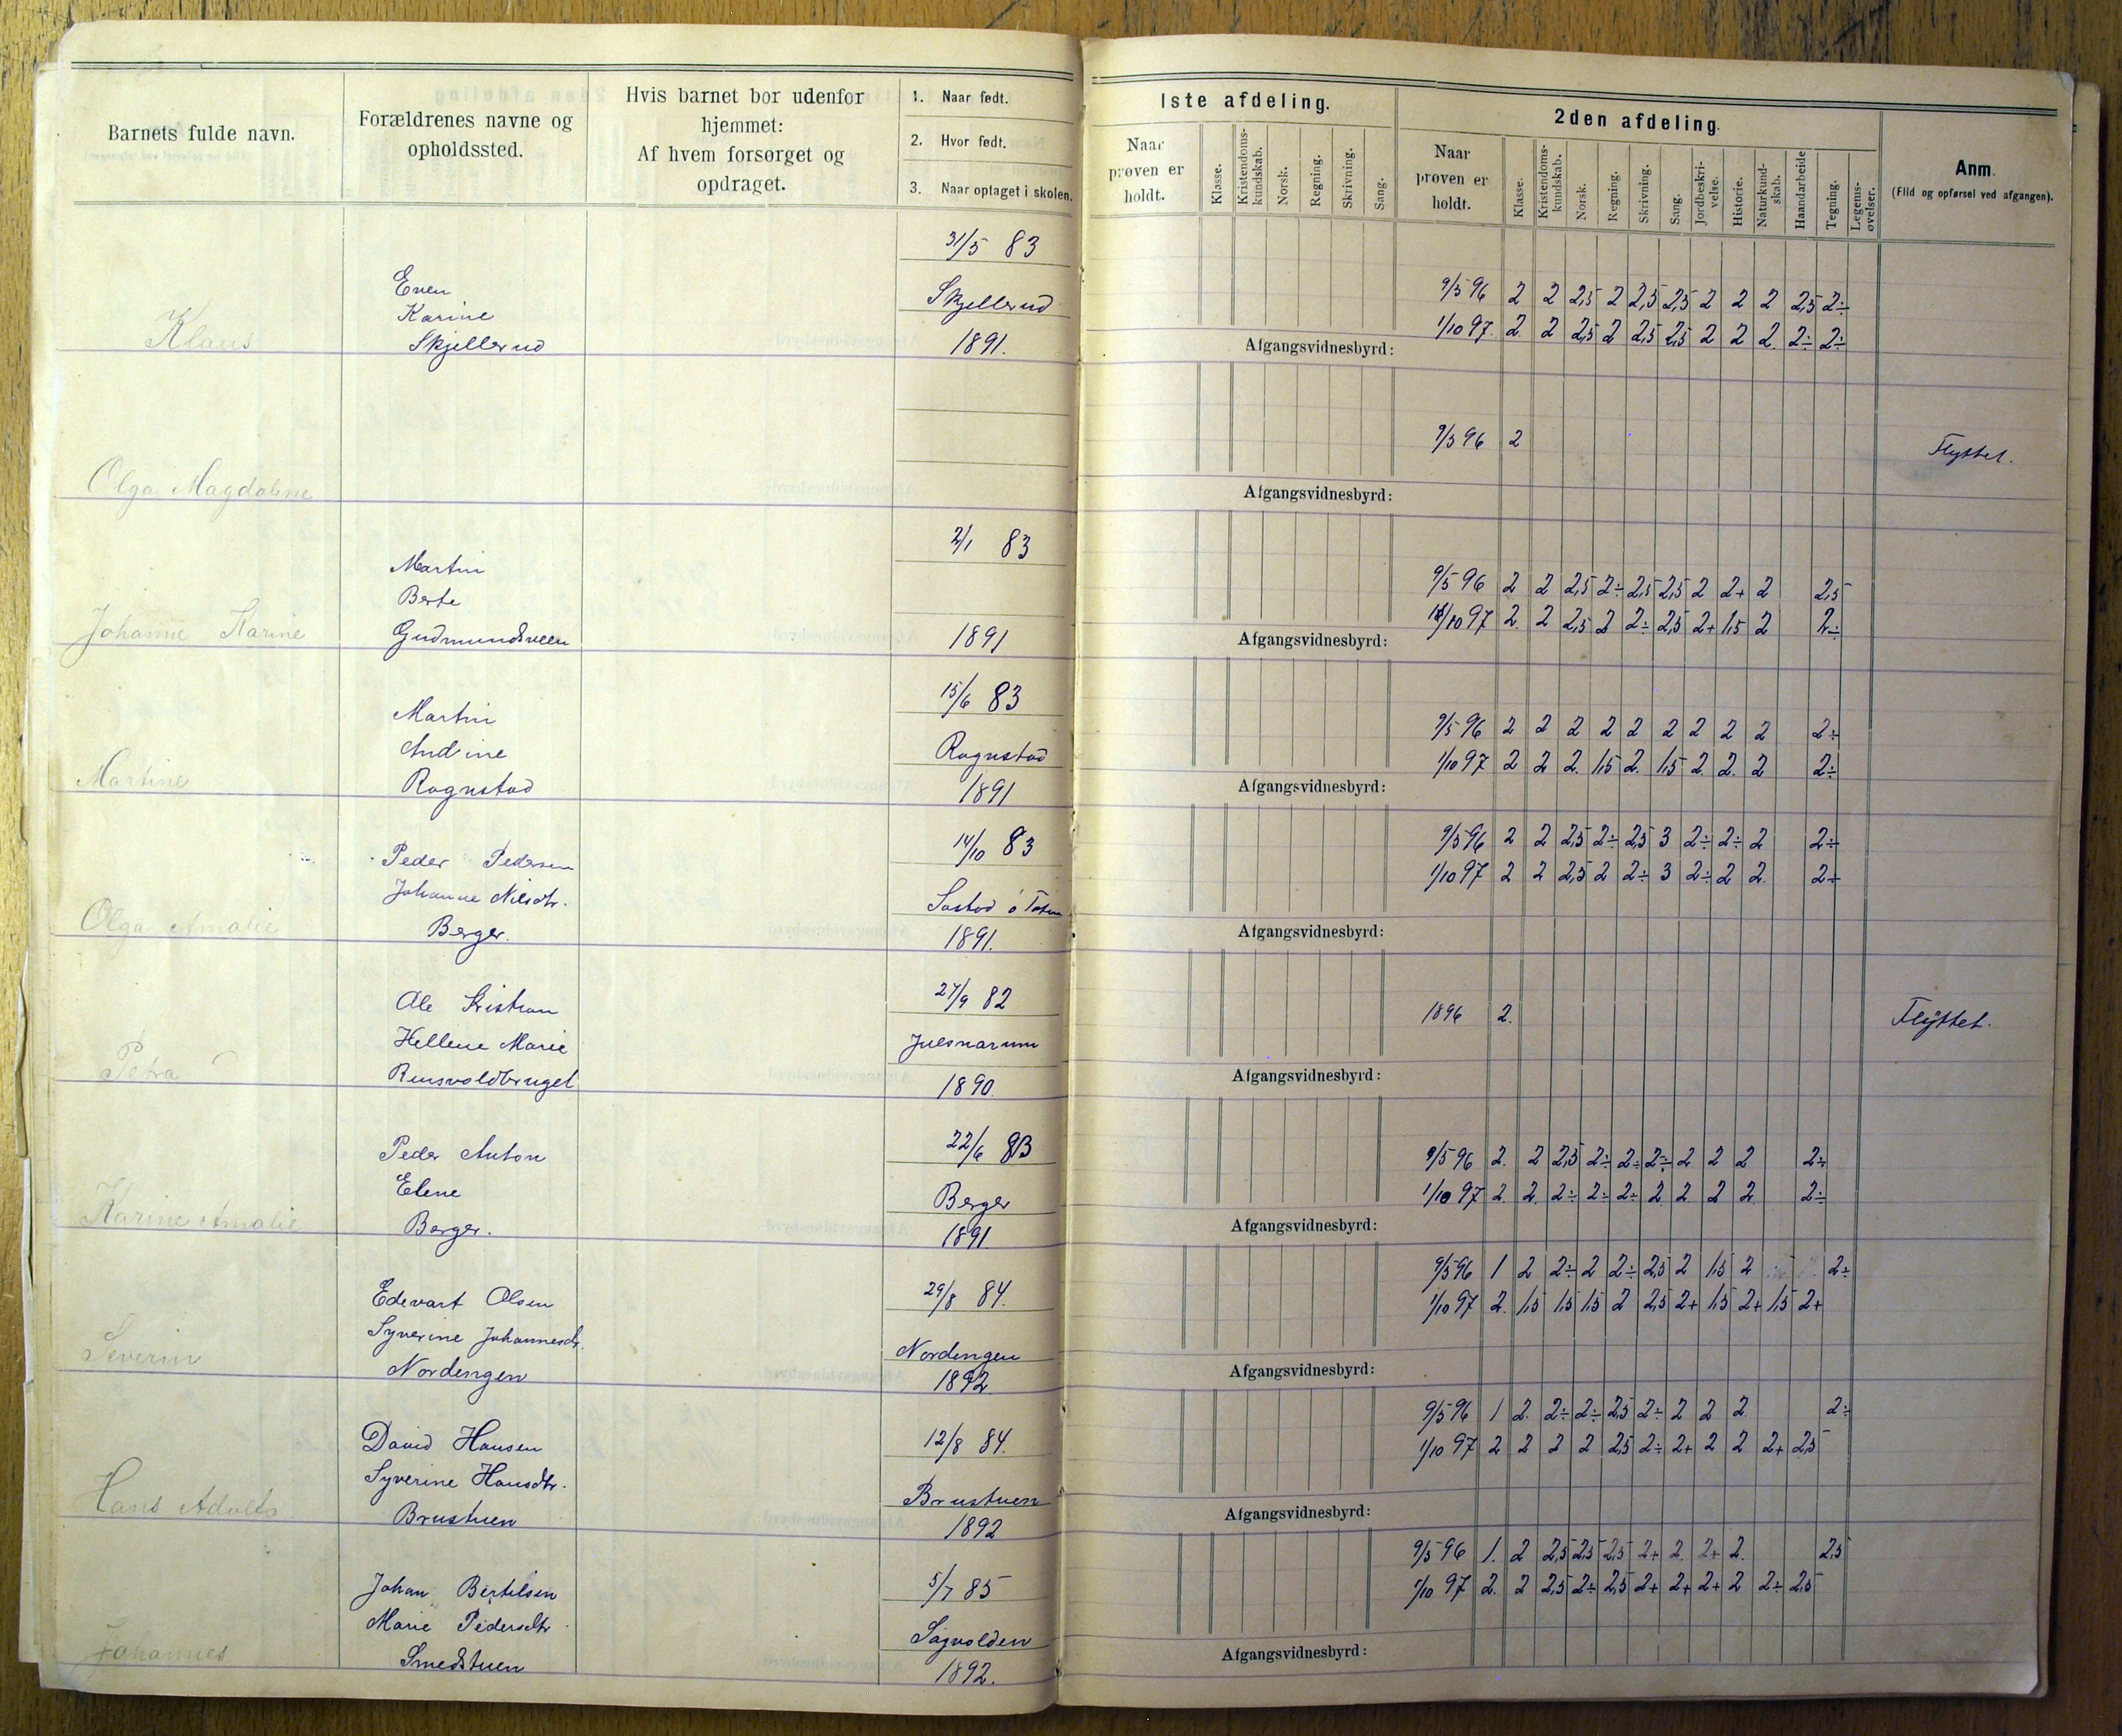 Barnets fulde navn.
Forældrenes navne og
opholdssted.
Hvis barnet bor udenfor
hjemmet:
Af hvem forsørget og
opdraget.
1. Naar født.
2. Hvor født.
3. Naar optaget i skolen.
Iste afdeling.
Naar
prøven er
holdt.
Klasse.
Kristendoms-
kundskab.
Norsk.
Regning.
Skrivning.
Sang.
2den afdeling.
Naar
prøven er
holdt.
Klasse.
Kristendoms-
kundskab.
Norsk.
Regning.
Skrivning.
Sang.
Jordbeskri-
velse.
Historie.
Naturkund-
skab.
Haandarbeide
Tegning.
Legems-
øvelser.
Anm.
(Flid og opførsel ved afgangen).
Klaus
Even
Karine
Skjellerud
31/5 83
Skjellerud
1891.
9/5 96 2 2 2,5 2 2,5 2,5 2 2 2 2,5 2÷
1/10 97. 2. 2 2,5 2 2,5 2,5 2 2 2. 2÷ 2÷
Afgangsvidnesbyrd:
Olga Magdaline
9/5 96 2
Flyttet.
Afgangsvidnesbyrd:
Johanne Karine
Martin
Berte
Gudmundsveen
2/1 83
1891
9/5 96 2 2 2,5 2÷ 2,5 2,5 2 2+ 2 2,5
1/10 97 2. 2 2,5 2 2÷ 2,5 2+ 1,5 2 2÷
Afgangsvidnesbyrd:
Martine
Martin
Andine
Rognstad
15/6 83
Rognstad
1891
9/5 96 2 2 2 2 2 2 2 2 2 2÷
1/10 97 2 2 2. 1,5 2. 1,5 2. 2. 2 2÷
Afgangsvidnesbyrd:
Olga Amalie
Peder Pedersen
Johanne Nilsdtr.
Berger.
14/10 83
1891.
9/5 96 2 2 2,5 2÷ 2,5 3 2÷ 2÷ 2 2÷
1/10 97 2 2 2,5 2 2÷ 3 2÷ 2 2. 2÷
Afgangsvidnesbyrd:
Petra
Ole Kristian
Hellene Marie
Rensvoldbruget
27/9 82
Julsnarum
1890.
1896 2.
Flyttet.
Afgangsvidnesbyrd:
Karine Amalie
Peder Anton
Elene
Berger.
22/6 83
Berger
1891.
9/5 96 2. 2 2,5 2÷ 2÷ 2÷ 2 2 2 2÷
1/10 97 2. 2. 2÷ 2÷ 2÷ 2 2 2 2 2÷
Afgangsvidnesbyrd:
Severin
Edevart Olsen
Syverine Johannesdtr.
Nordengen
29/8 84.
Nordengen
1892
9/5 96 1 2 2÷ 2 2÷ 2,5 2 1,5 2 2÷
1/10 97 2. 1,5 1,5 1,5 2 2,5 2+ 1,5 2+ 1,5 2+
Afgangsvidnesbyrd:
Hans Adolts
David Hansen
Syverine Hansdtr.
Brustuen
12/8 84.
Brustuen
1892
9/5 96 1 2. 2÷ 2÷ 2,5 2÷ 2 2 2 2÷
1/10 97 2 2 2 2 2,5 2÷ 2+ 2 2 2+ 2,5
Afgangsvidnesbyrd:
Johannes
Johan Bertelsen
Marie Pedersdtr
Smedstuen
5/7 85
Sagvolden
1892.
9/5 96 1. 2 2,5 2,5 2,5 2+ 2. 2+ 2. 2,5
1/10 97 2. 2 2,5 2÷ 2,5 2+ 2+ 2+ 2 2÷ 2,5
Afgangsvidnesbyrd: